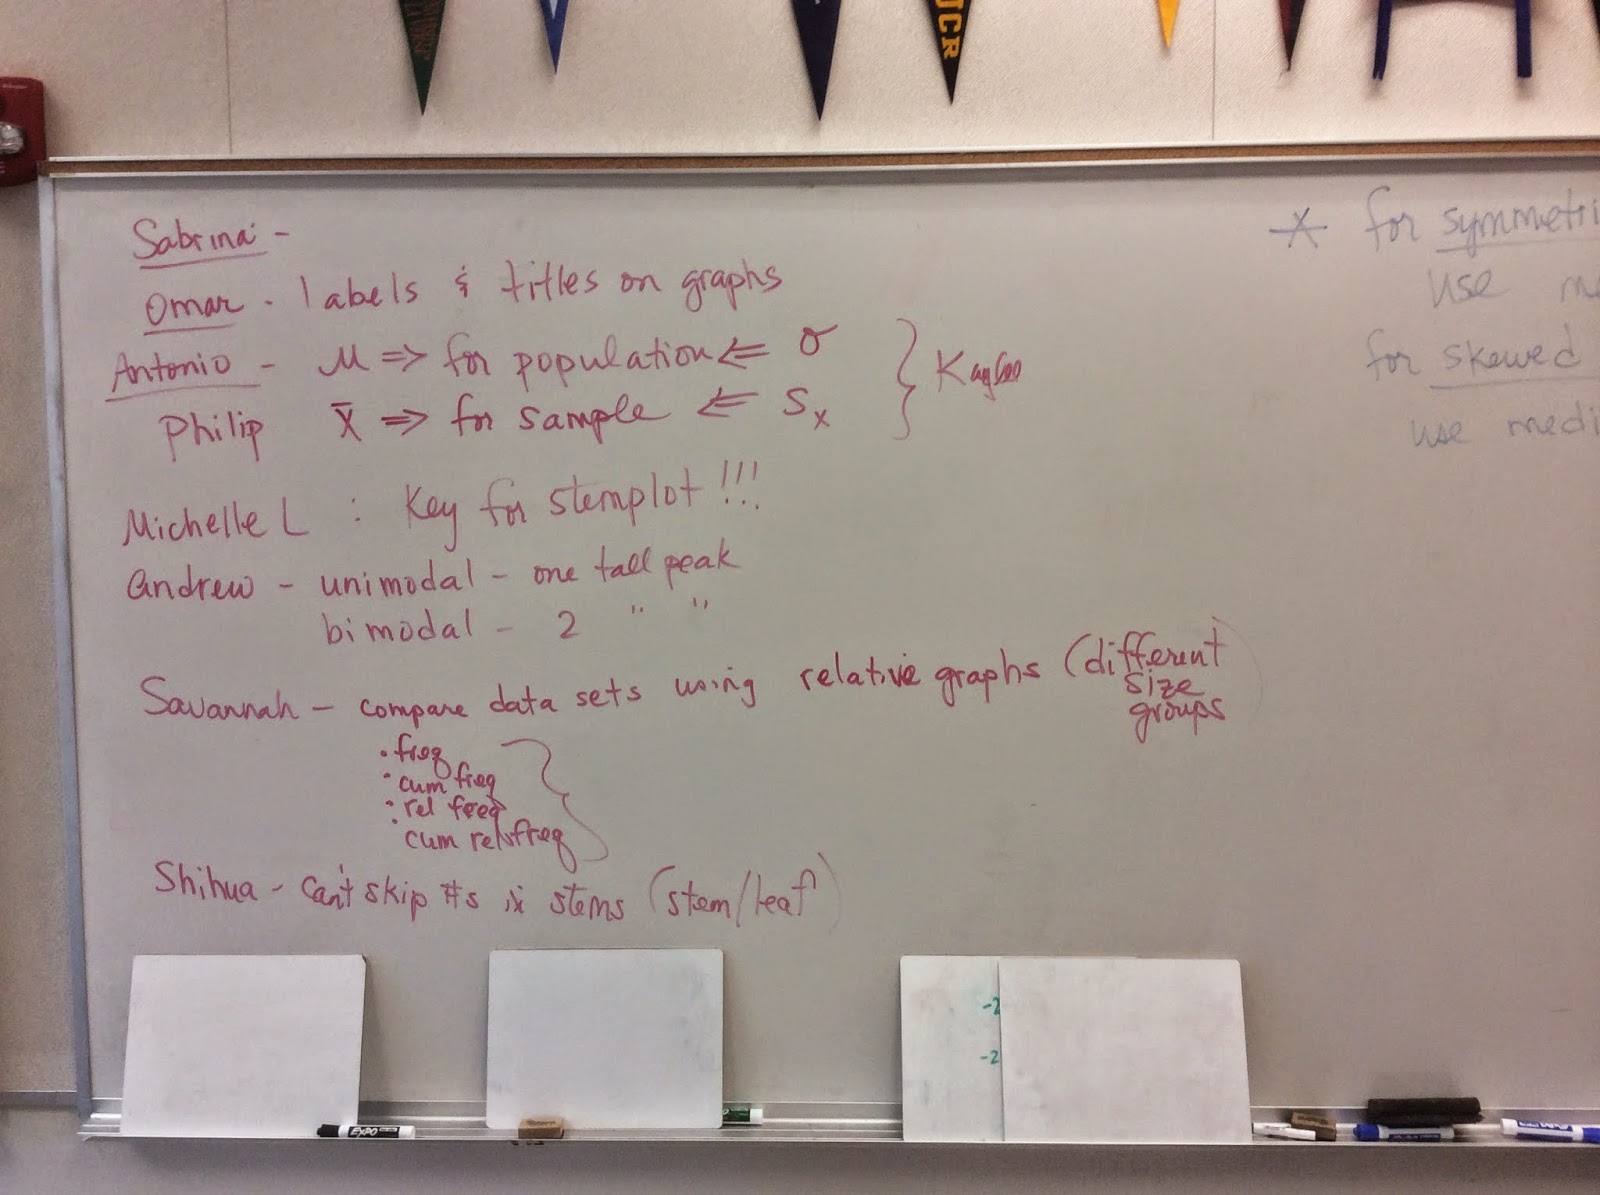 UCR
Sabrina -
Omar - labels & titles on graphs
Antonio - μ => for population <= σ
Philip x̄ => for sample <= Sx
Michelle L : Key for stemplot !!!
Andrew - unimodal - one tall peak
bimodal - 2 " "
Savannah - compare data sets using relative graphs (different
size
groups
• freq
• cum freq
• rel freq
• cum rel freq
Shihua - Can't skip #s in stems (stem/leaf)
* for symmetri
use me
for skewed
use medi
-2
-2
EXPO